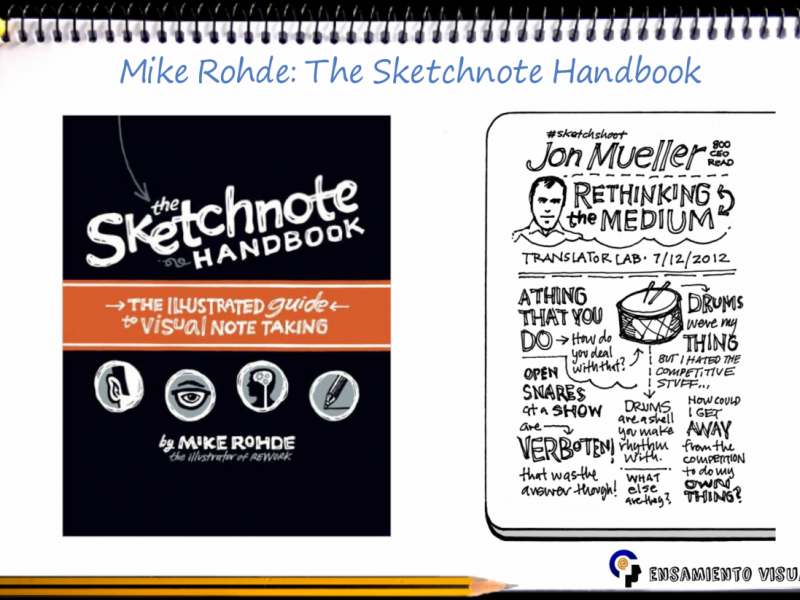 Mike Rohde: The Sketchnote Handbook
the
Sketchnote
HANDBOOK
THE ILLUSTRATED guide
to visual NOTE TAKING
by MIKE ROHDE
the illustrator of REWORK
#sketchshoot
Jon Mueller
800
CEO
READ
RETHINKING
the MEDIUM
TRANSLATOR LAB · 7/12/2012
A THING
THAT YOU
DO → How do
you deal
with that?
OPEN
SNARES
at a SHOW
are
VERBOTEN!
that was the
answer though!
DRUMS
were my
THING
BUT I HATED THE
COMPETITIVE
STUFF...
DRUMS
are a shell
you make
rhythm
with.
WHAT
else
are they?
HOW COULD
I GET
AWAY
from the
COMPETITION
to do my
OWN
THING?
ENSAMIENTO VISUA